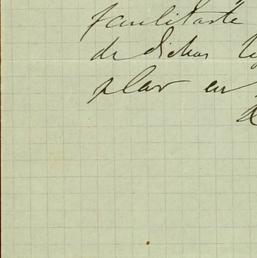 facilitarte
de dichas
plar en